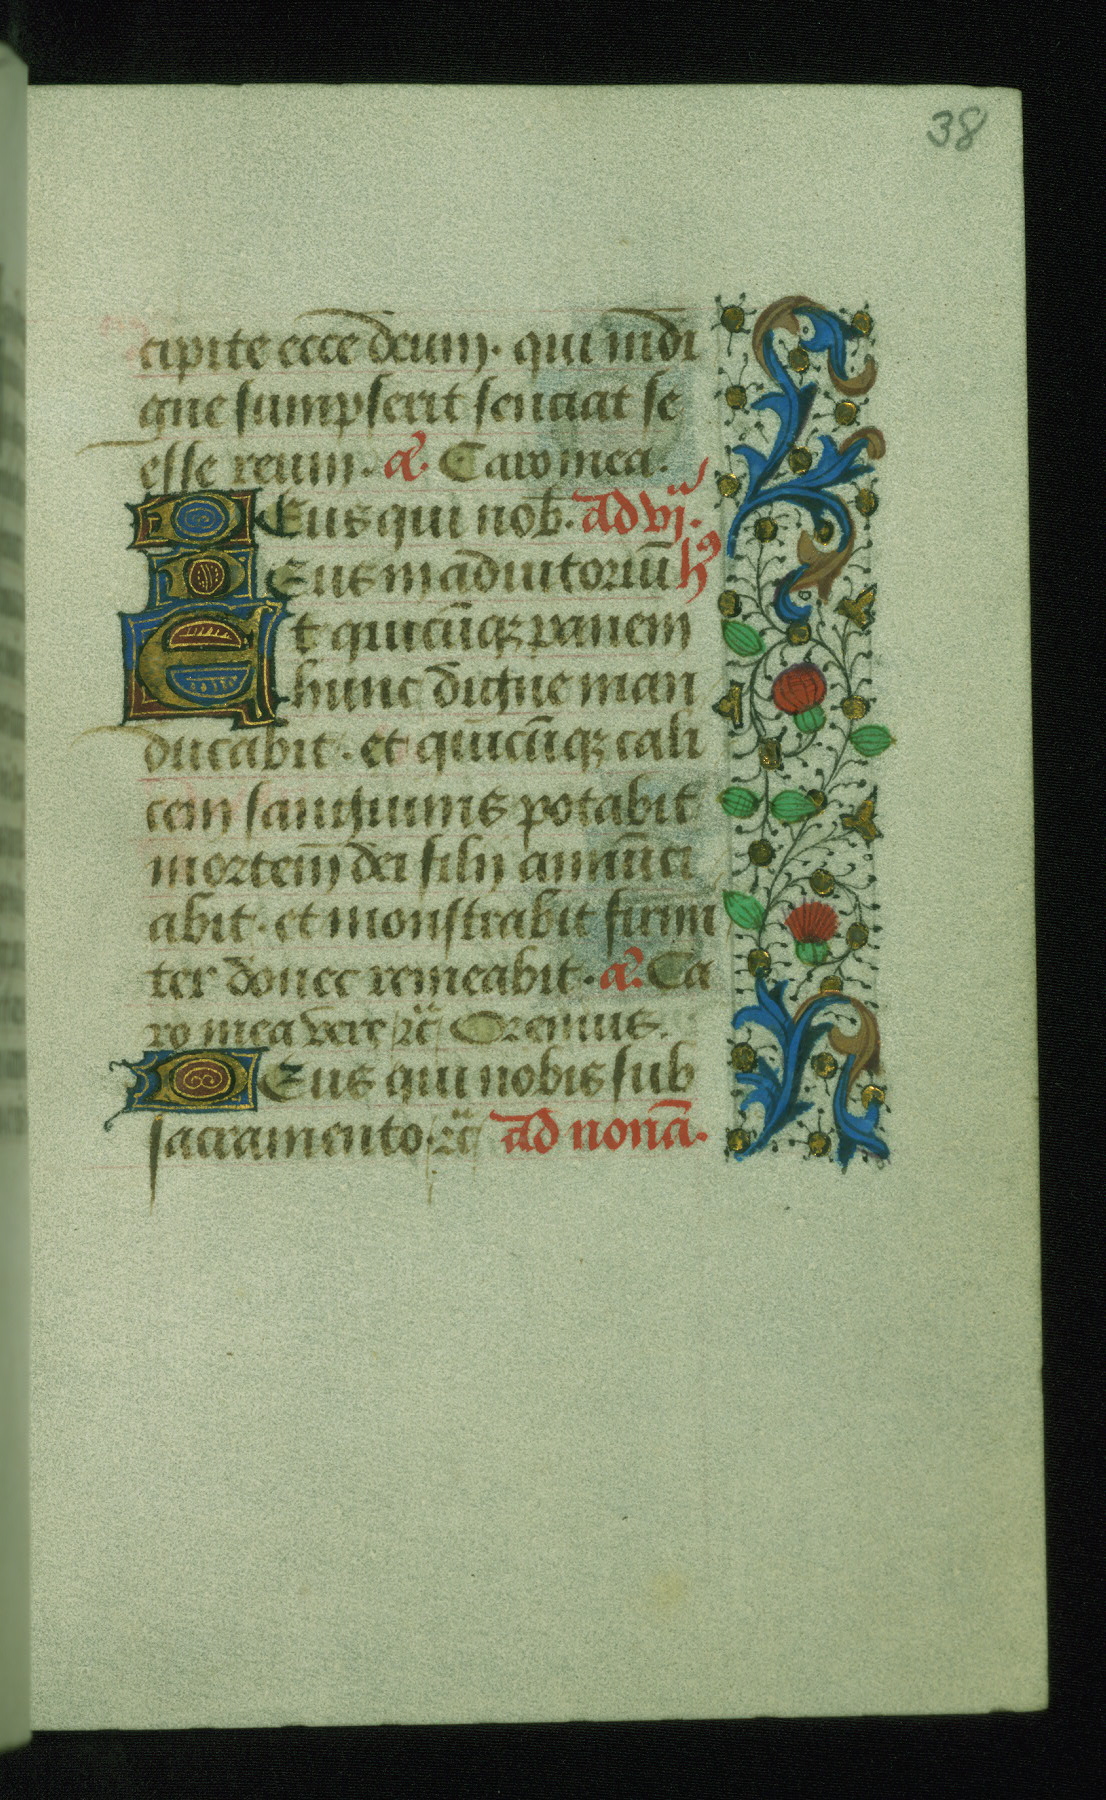 38
cipite ecce deum. qui indi
gne sumpserit senciat se
esse reum. a͞. Caro mea.
Deus qui nob̄. Ad vj.
Deus in adiutoriū h9
Et quicūq3 panem
hunc digne man
ducabit. et quicūq3 cali
cem sanguinis potabit
mortem̄ dei filij annūci
abit. et monstrabit firmi
ter donec remeabit. a͞. Ca
ro mea vere rc̄ Oremus.
Deus qui nobis sub
sacramento. rc̄ Ad nonā.